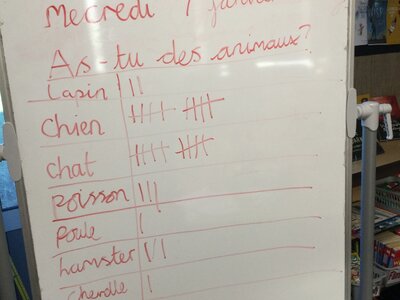 Mecredi 7
As-tu des animaux?
Lapin
Chien
chat
Poisson
Poule
hamster